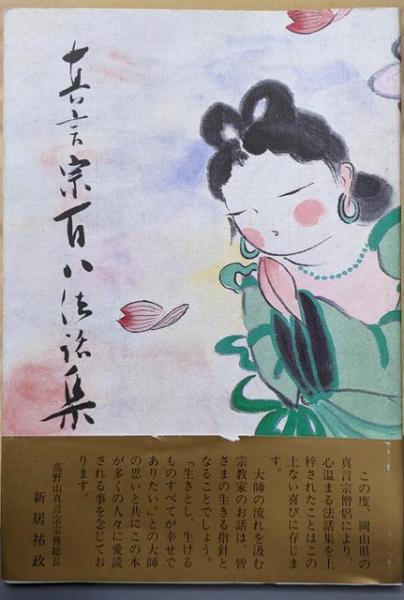 真言宗百八法話集
この度、岡山県の
真言宗僧侶により、
心温まる法話集を上
梓されたことはこの
上ない喜びに存じま
す。
大師の流れを汲む
宗教家のお話は、皆
さまの生きる指針と
なることでしょう。
「生きとし、生ける
ものすべてが幸せで
ありたい。」との大師
の思いと共にこの本
が多くの人々に愛読
される事を念じてお
ります。
高野山真言宗宗務総長
新居祐政